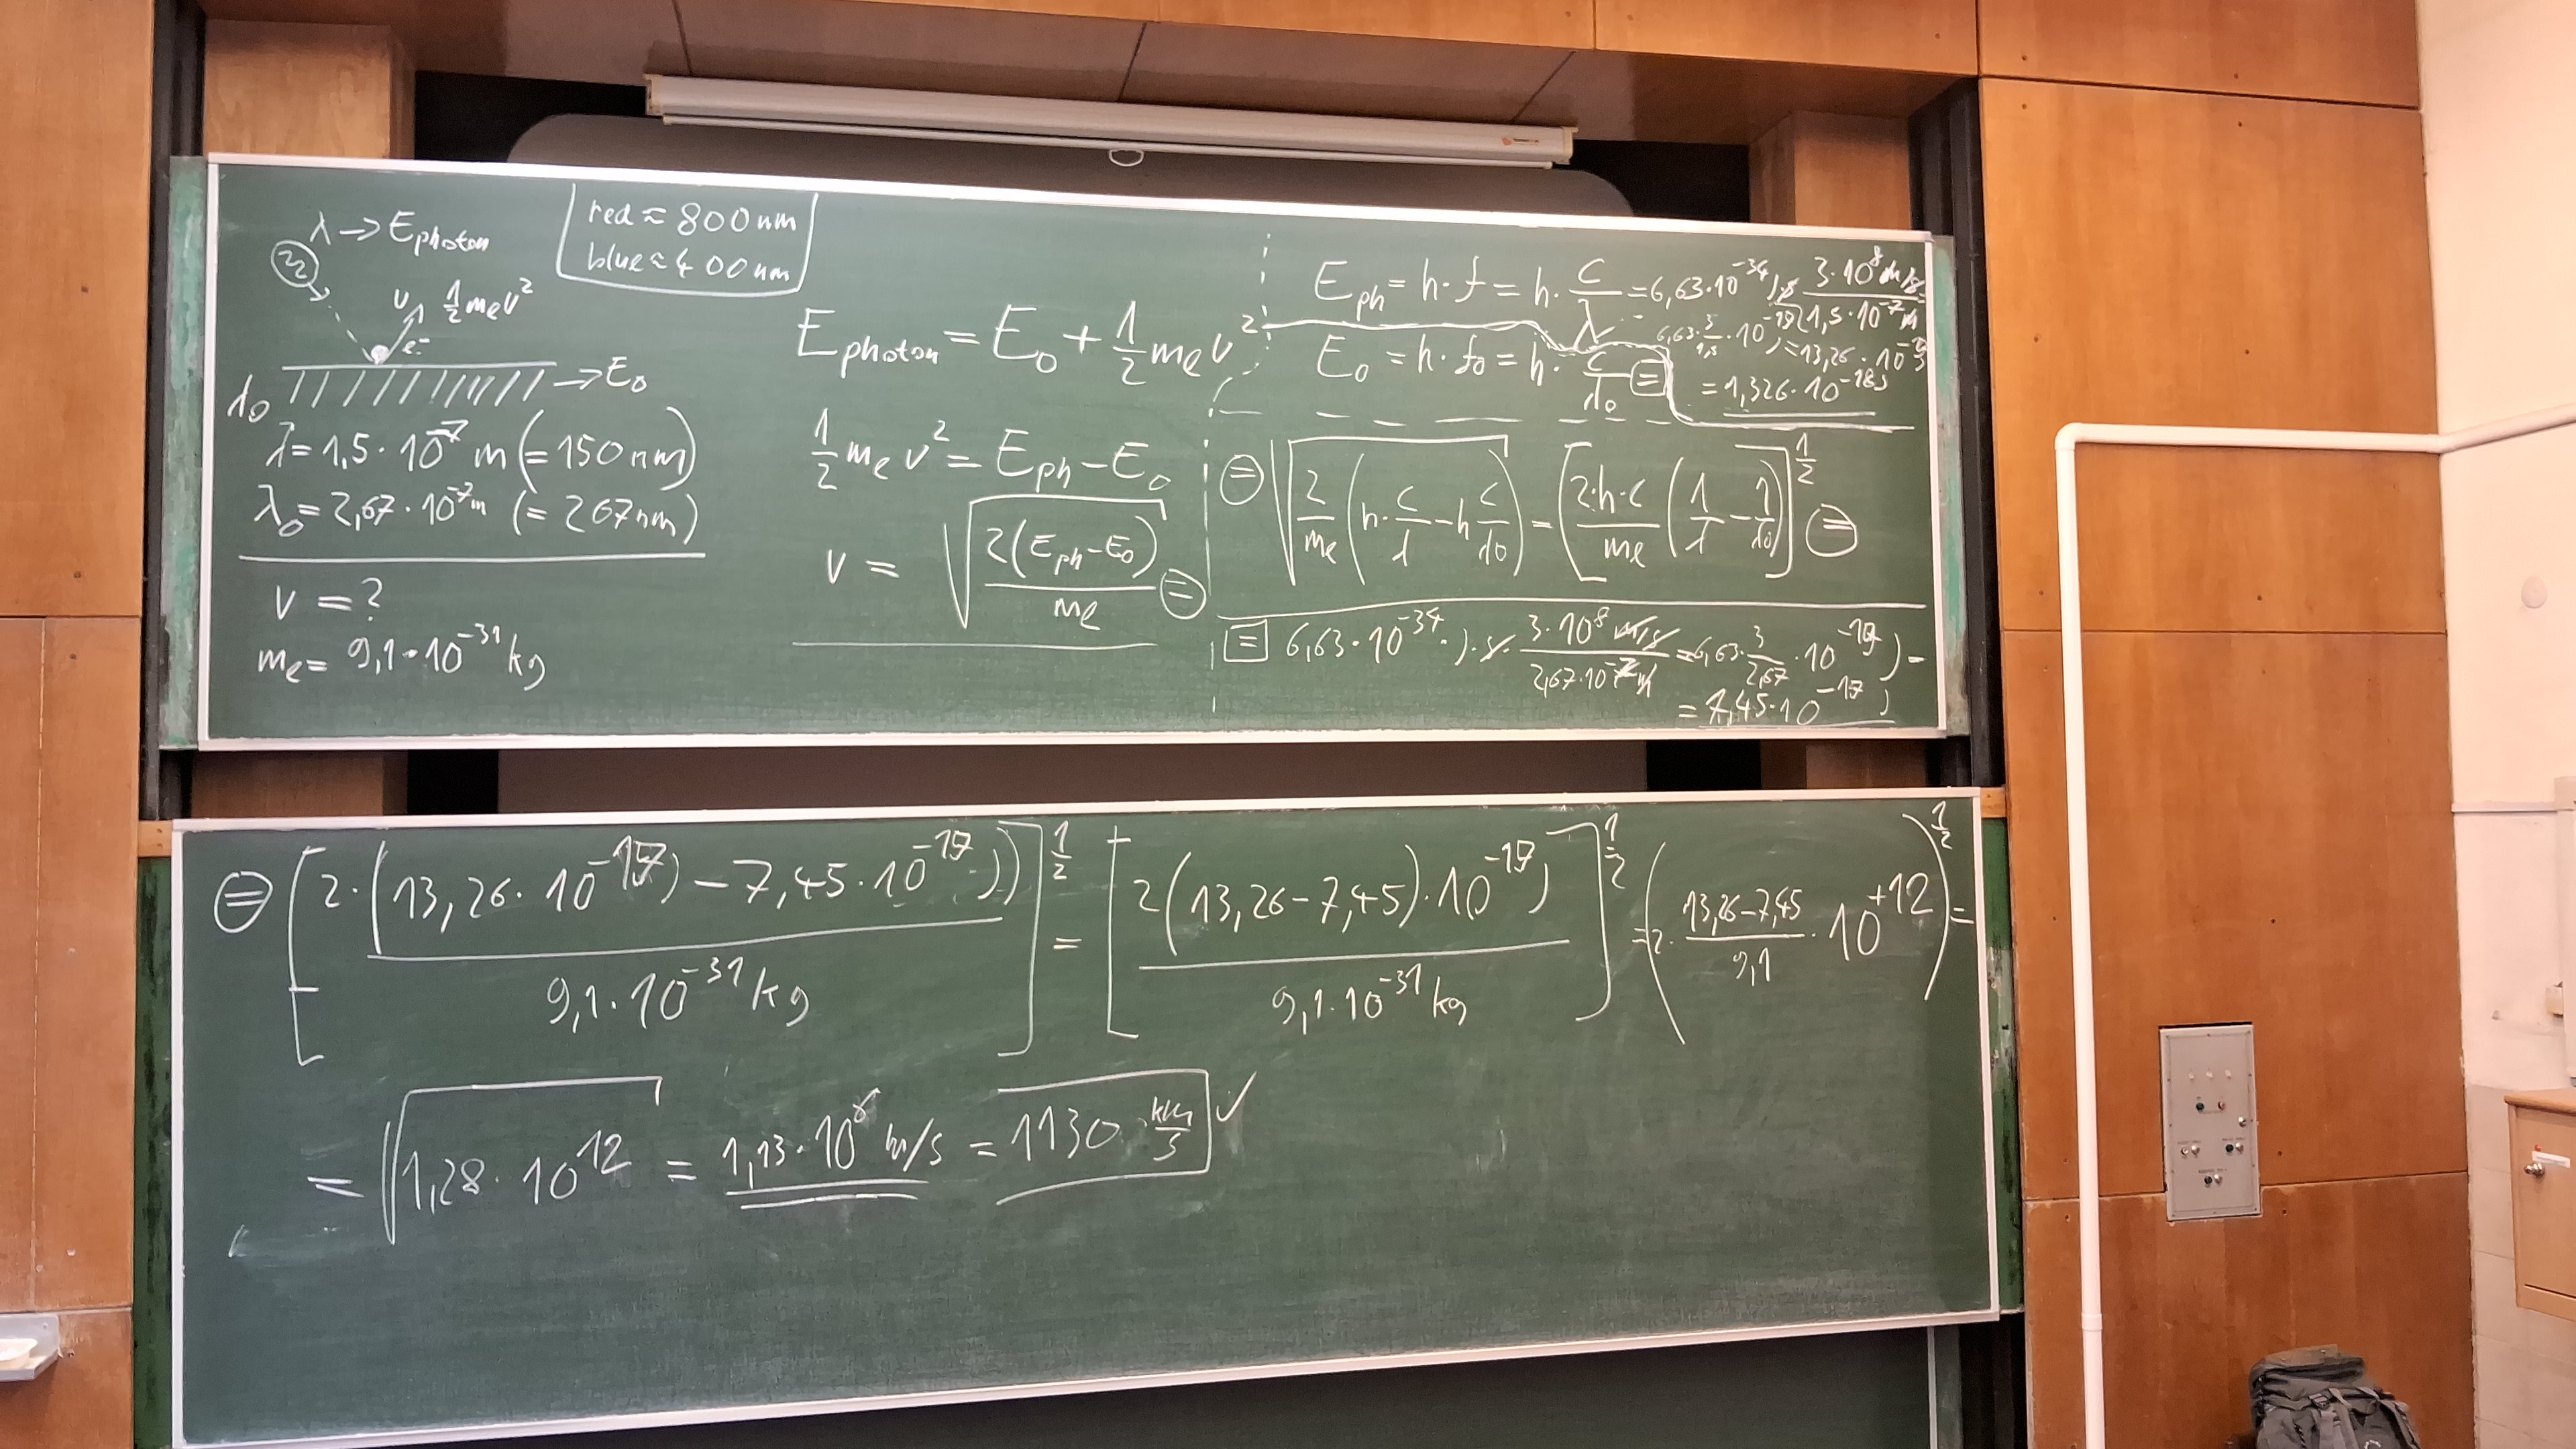 λ → Ephoton
red ≈ 800 nm
blue ≈ 400 nm
v 1/2 mev²
e⁻
→ E0
λ0
λ = 1,5 · 10⁻⁷ m (= 150 nm)
λ0 = 2,67 · 10⁻⁷ m (= 267 nm)
v = ?
me = 9,1 · 10⁻³¹ kg
Ephoton = E0 + 1/2 mev²
1/2 me v² = Eph − E0
v = √(2(Eph − E0)/me) ⊜
Eph = h · f = h · c/λ = 6,63 · 10⁻³⁴ J·s 3·10⁸ m/s / 1,5·10⁻⁷ m =
6,63 · 3/1,5 · 10⁻¹⁹ J = 13,26 · 10⁻¹⁹ J
= 1,326 · 10⁻¹⁸ J
E0 = h · f0 = h · c/λ0 ⊟
⊜ √(2/me (h · c/λ − h c/λ0)) = [2·h·c/me (1/λ − 1/λ0)]^1/2 ⊜
⊟ 6,63 · 10⁻³⁴ · J·s · 3·10⁸ m/s / 2,67·10⁻⁷ m = 6,63 · 3/2,67 · 10⁻¹⁹ J =
= 7,45 · 10⁻¹⁹ J
⊜ [2 · (13,26 · 10⁻¹⁹ J − 7,45 · 10⁻¹⁹ J) / 9,1 · 10⁻³¹ kg]^1/2 = [2(13,26 − 7,45) · 10⁻¹⁹ J / 9,1 · 10⁻³¹ kg]^1/2 = (2 · 13,26 − 7,45 / 9,1 · 10⁺¹²)^1/2 =
= √(1,28 · 10¹²) = 1,13 · 10⁶ m/s = 1130 · km/s ✓